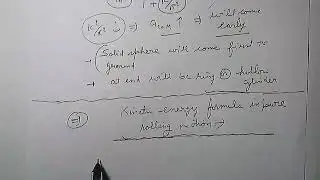 1 + K²/R²
K²/R² ↓ ⇒ aCM ↑ ⇒ will come
early
→ Solid sphere will come first to
ground
→ at end will be ring or hollow
cylinder
⇒ Kinetic energy formula in pure
rolling motion →